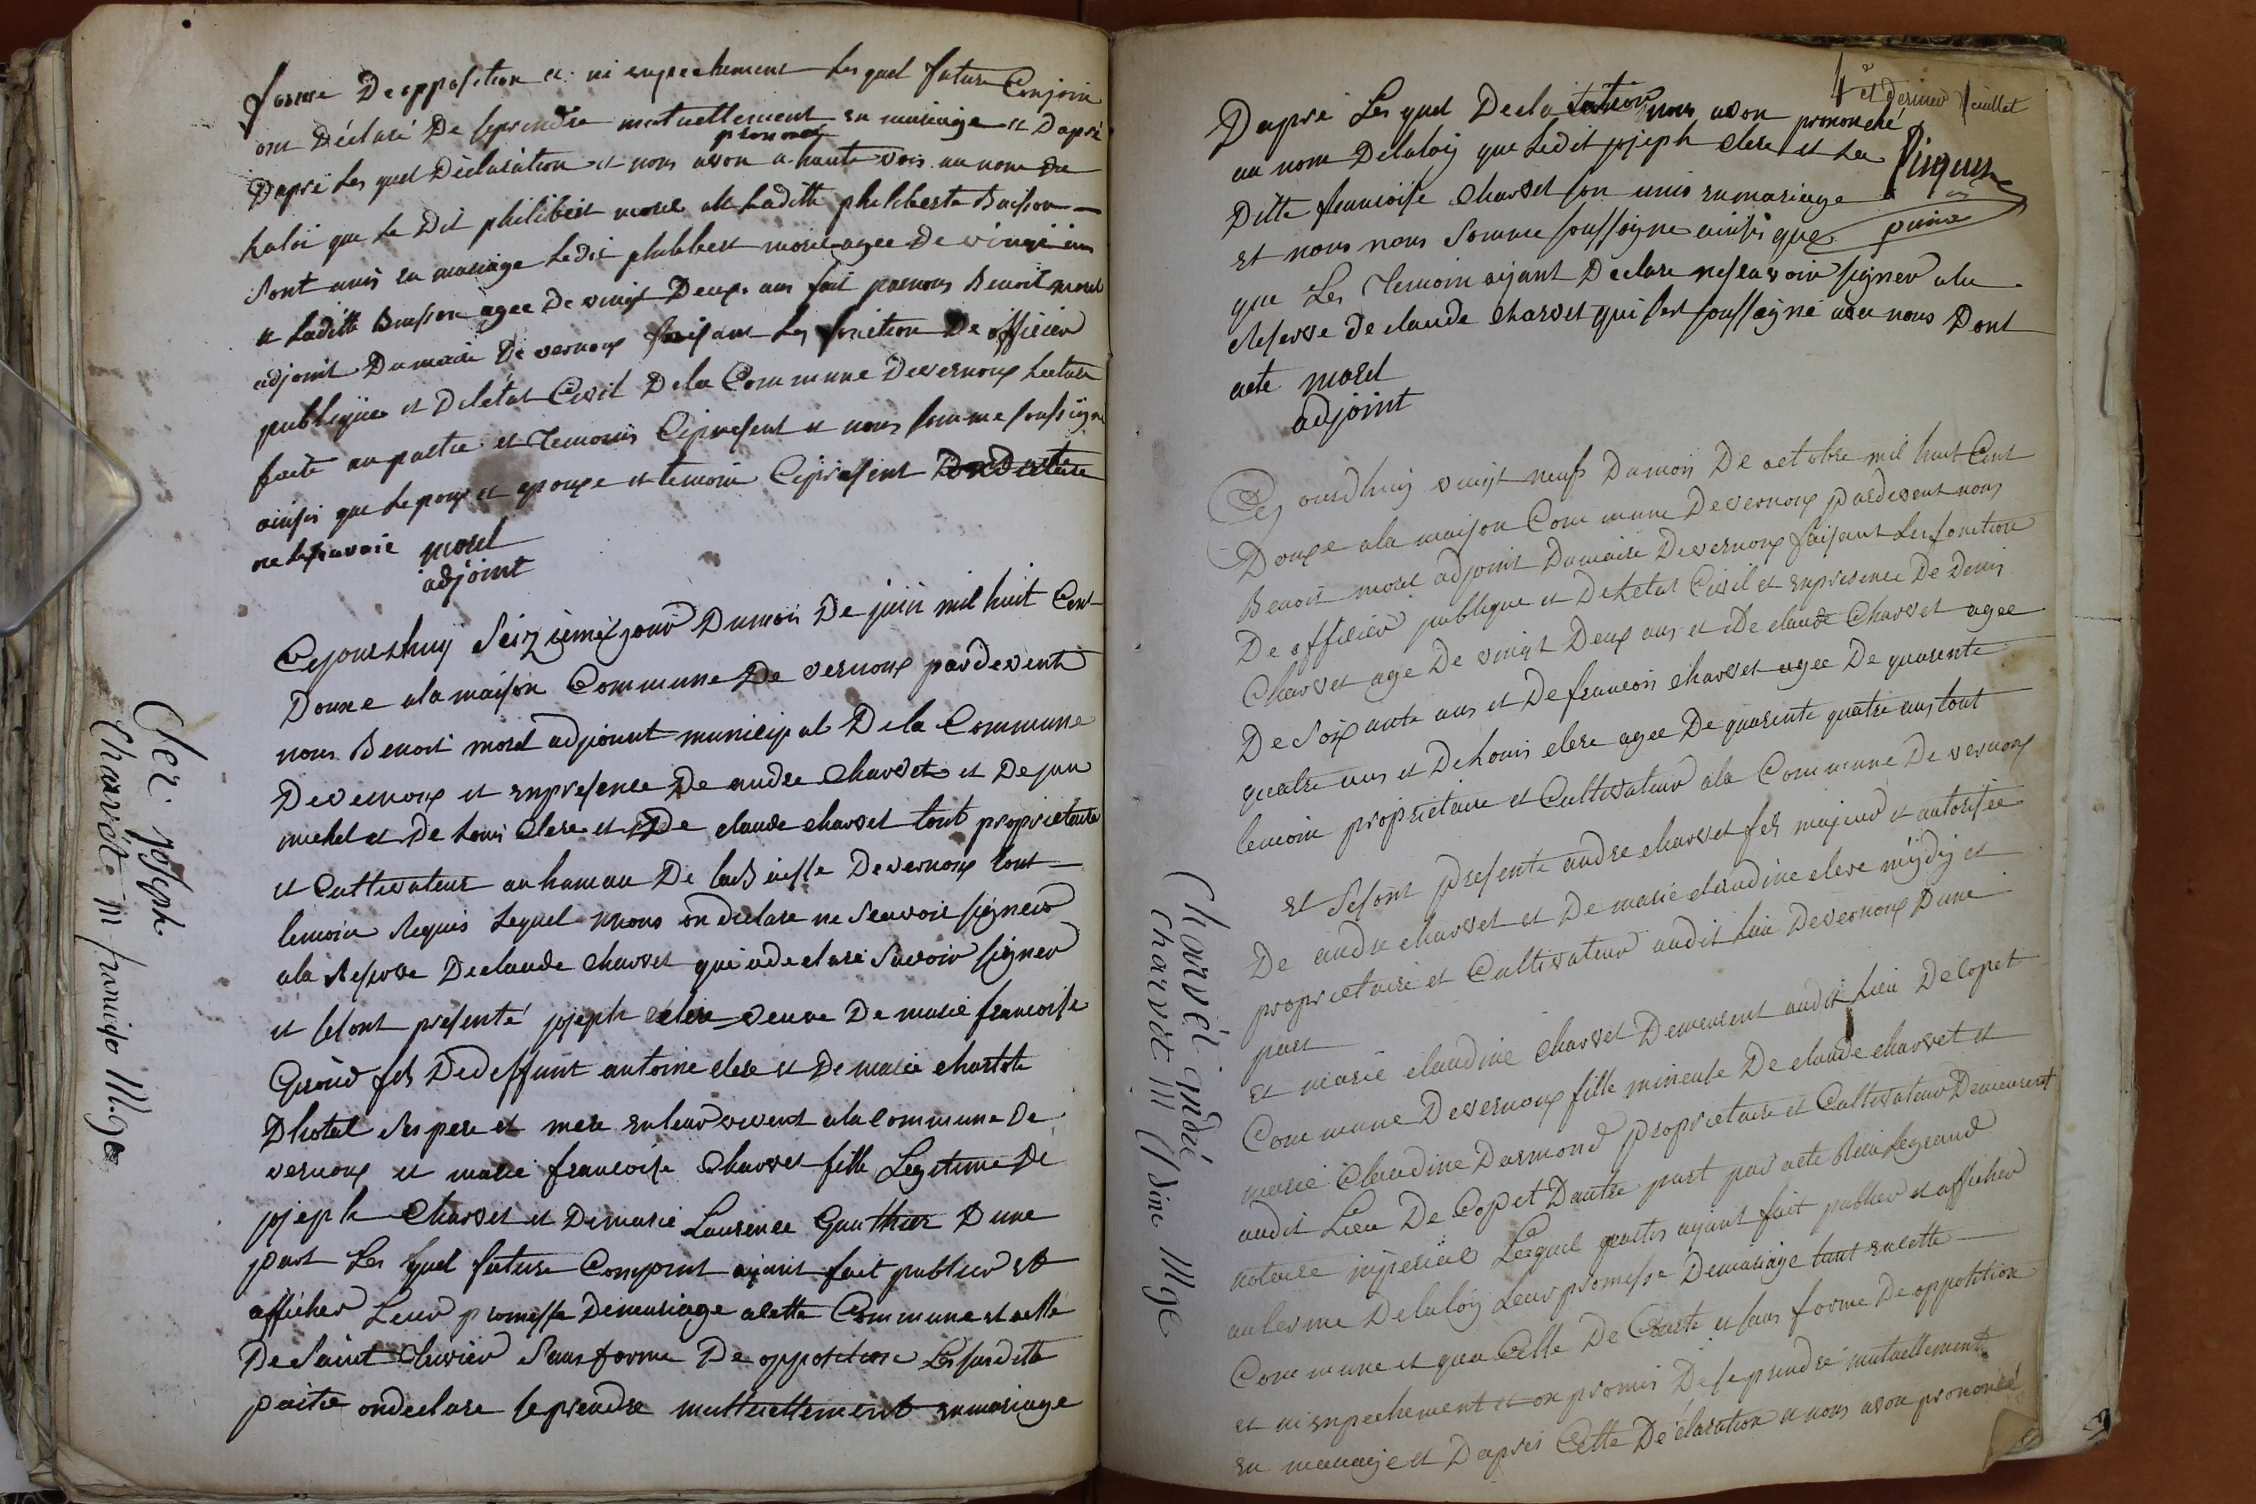 forme De opposition et ni enpechement Les quel future Conjoin
ont Déclaré De se prendre mutuellement en mariage et Daprè
Daprè Les quel Déclaration et nous avon prononcé a haute vois au nom De
La loi que Le Dit philibert morel et Laditte philiberte Buisson
Sont unis en mariage Ledit philibert morel agee De vingt
et Laditte Buisson agee De vingt Deux ans fait Benoit morel
adjoint Du maire De vernoux faisant Les fonction De officier
publique et De létat Civil De la Commune De vernoux Lecture
faite au partie et Temoins Cipresent et nous somme soussigne
ainsis que Lepoux et epouxe et temoin Cipresent
ne Le savoir morel
adjoint
Cejourdhuy Seizieme jour Du mois De juin mil huit Cent
Douxe a la maison Commune De vernoux pardevent
nous Benoit morel adjoint municipal De la Commune
De vernoux et enpresence De andre Charvet et De jean
michel et De Louis Clere et De claude charvet tout proprietaire
et Cultivateur au hameau De De vernoux tout
temoin Requis Lequel nous on declare ne Seavoir signer
a la Reserve De claude charvet qui a declaré Savoir signer
et se sont présenté joseph clere veuve De marie francoise
Giroud fils De deffunt antoine clere et De marie charlote
Dhotal Ses pere et mere en leur vivent a la Commune De
vernoux et marie francoise Charvet fille Legitime De
joseph Charvet et De marie Laurence Gauthier D une
part Les quel future Conjoint aÿant fait publier et
afficher Leur promesse De mariage a cette Commune et celle
De Saint Trivier Sans forme De opposition Les susditte
partie on declare se prendre mutuellement en mariage
Cler. joseph.
Charvét m françoise Mge
4e et dernier feuillet
Daprè Les quel Declaration nous avon prononché
au nom De la loiÿ que Ledit joseph clere et La
Ditte francoise Charvet son unis en mariage
Et nous nous Somme soussigne ainsis que
que Les Temoin aÿant Declare ne seavoir signer a la
Reserve De claude charvet qui set soussigné avec nous Dont
acte morel
adjoint
Cej ourdhuiÿ vingt neuf Du mois De octobre mil huit Cent
Douxe a la maison Commune De vernoux pardevent nous
Benoit morel adjoint Du maire De vernoux faisant Les fonction
De officier publique et De Letat Civil et enpresence De Denis
Charvet age De vingt Deux ans et De claude Charvet agee
De Soixante ans et De francois charvet agee De quarente
quatre ans et De Louis clere agee De quarente quatre ans tout
temoin proprietaire et Cultivateur a la Commune De vernoux
et Se sont presente andre charvet fils majeur et autorisée
De andre charvet et De marie claudine clere
proprietaire et Cultivateur audit Lieu De vernoux D une
part
Et marie claudine charvet Demeurent audit Lieu De Copet
Commune De vernoux fille mineuse De claude charvet et
marie Claudine Darmond proprietaire et Cultivateur Demeurent
audit Lieu De Copet Dautre part par acte Reçu Legrand
notaire inperial Lesquel parties aÿant fait publier et afficher
au terme De la loiÿ Leur promesse De mariage tant en cette
Commune et qua Celle De et sans forme De opposition
et ni enpechement et on promis De se prendre mutuellement
en mariage et Daprès Cette Déclaration et nous avon prononcé
Charvét. andré
charvét m Cldine Mge